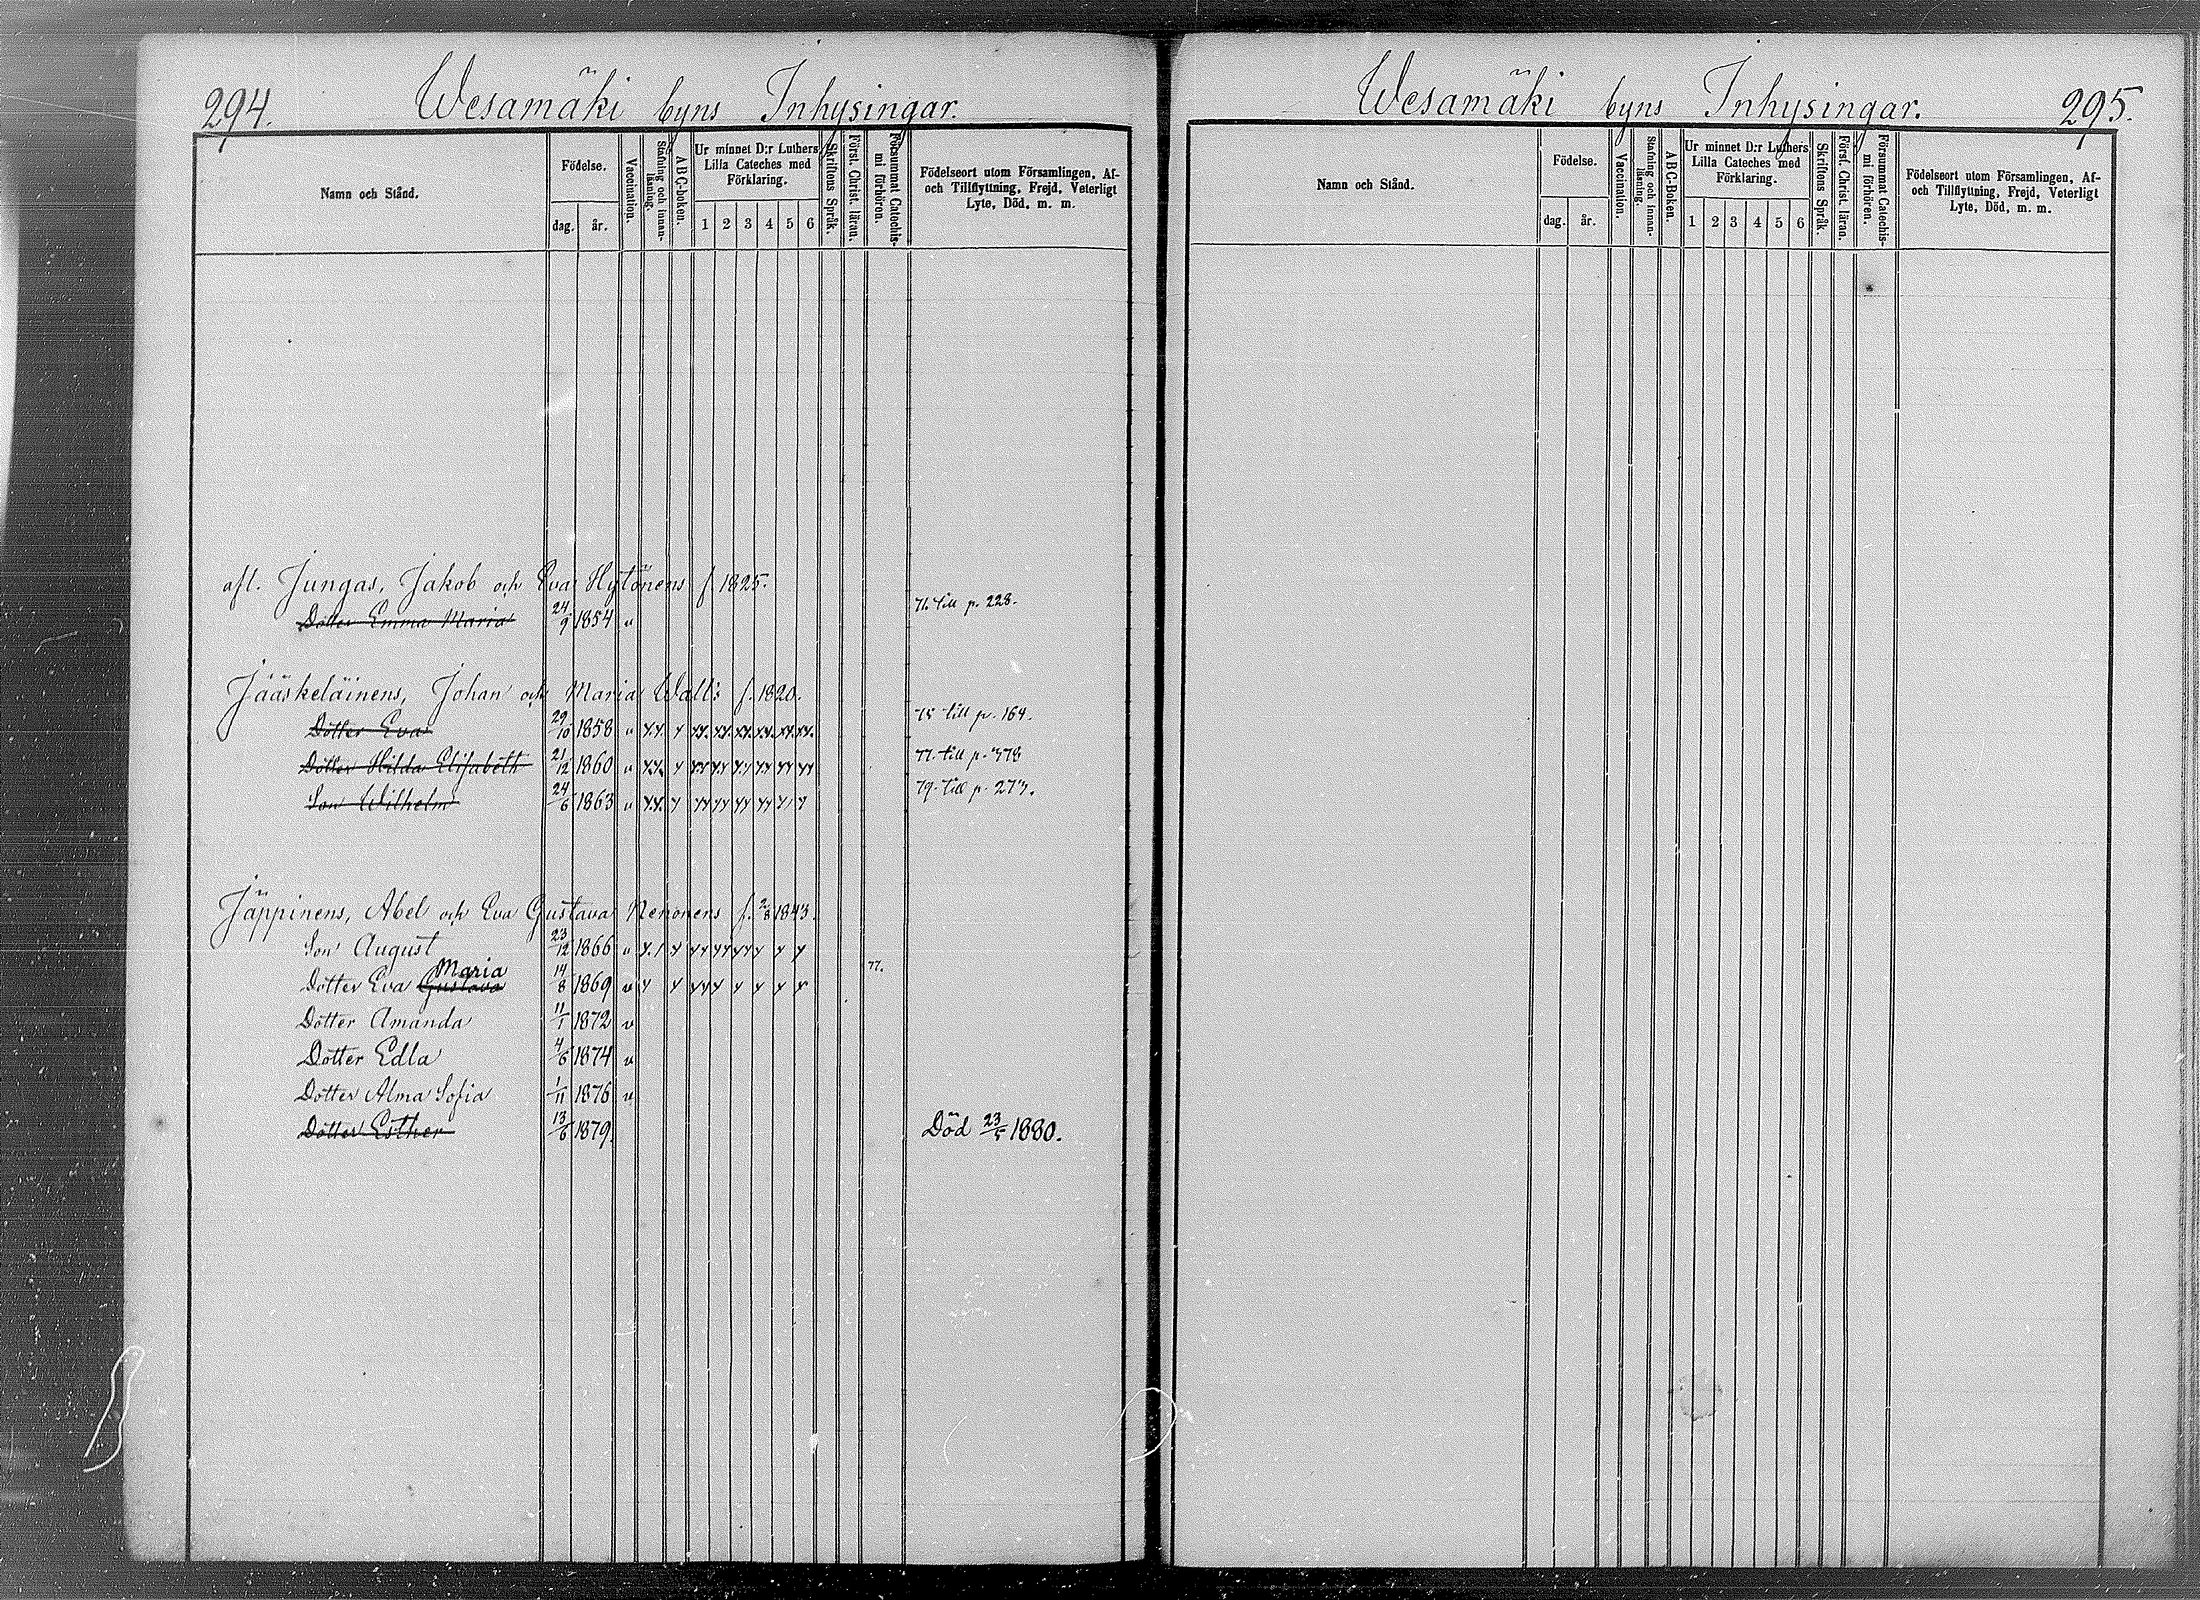 294. Wesamäki byns Inhysingar.
Namn och Stånd.
Födelse.
dag. år.
Vaccination.
Stafning och innanläsning.
ABC-boken.
Ur minnet D:r Luthers Lilla Cateches med Förklaring.
1 2 3 4 5 6
Skriftens Språk.
Först. Christ. läran.
Försummat Catechismi förhören.
Födelseort utom Församlingen, Af- och Tillflyttning, Frejd, Veterligt Lyte, Död, m. m.
afl. Jungas, Jakob och Eva Hytönens f 1825.
Dotter Emma Maria 24/9 1854 v 71. till p. 228.
Jääskeläinens, Johan och Maria Wall's f. 1820.
Dotter Eva 29/10 1858 v 75 till p. 164.
Dotter Hilda Elisabeth 21/12 1860 v 77. till p. 378
Son Wilhelm 24/6 1863 v 79. till p. 273.
Jäppinens, Abel och Eva Gustava Nenonens f. 2/8 1843.
Son August 23/12 1866 v
Dotter Eva Gustava Maria 14/8 1869 v 77.
Dotter Amanda 11/1 1872 v
Dotter Edla 4/6 1874 v
Dotter Alma Sofia 1/11 1876 v
Dotter Esther 13/6 1879. Död 23/5 1880.
Wesamäki byns Inhysingar. 295.
Namn och Stånd.
Födelse.
dag. år.
Vaccination.
Stafning och innanläsning.
ABC-Boken.
Ur minnet D:r Luthers Lilla Cateches med Förklaring.
1 2 3 4 5 6
Skriftens Språk.
Först. Christ. läran.
Försummat Catechismi förhören.
Födelseort utom Församlingen, Af- och Tillflyttning, Frejd, Veterligt Lyte, Död, m. m.